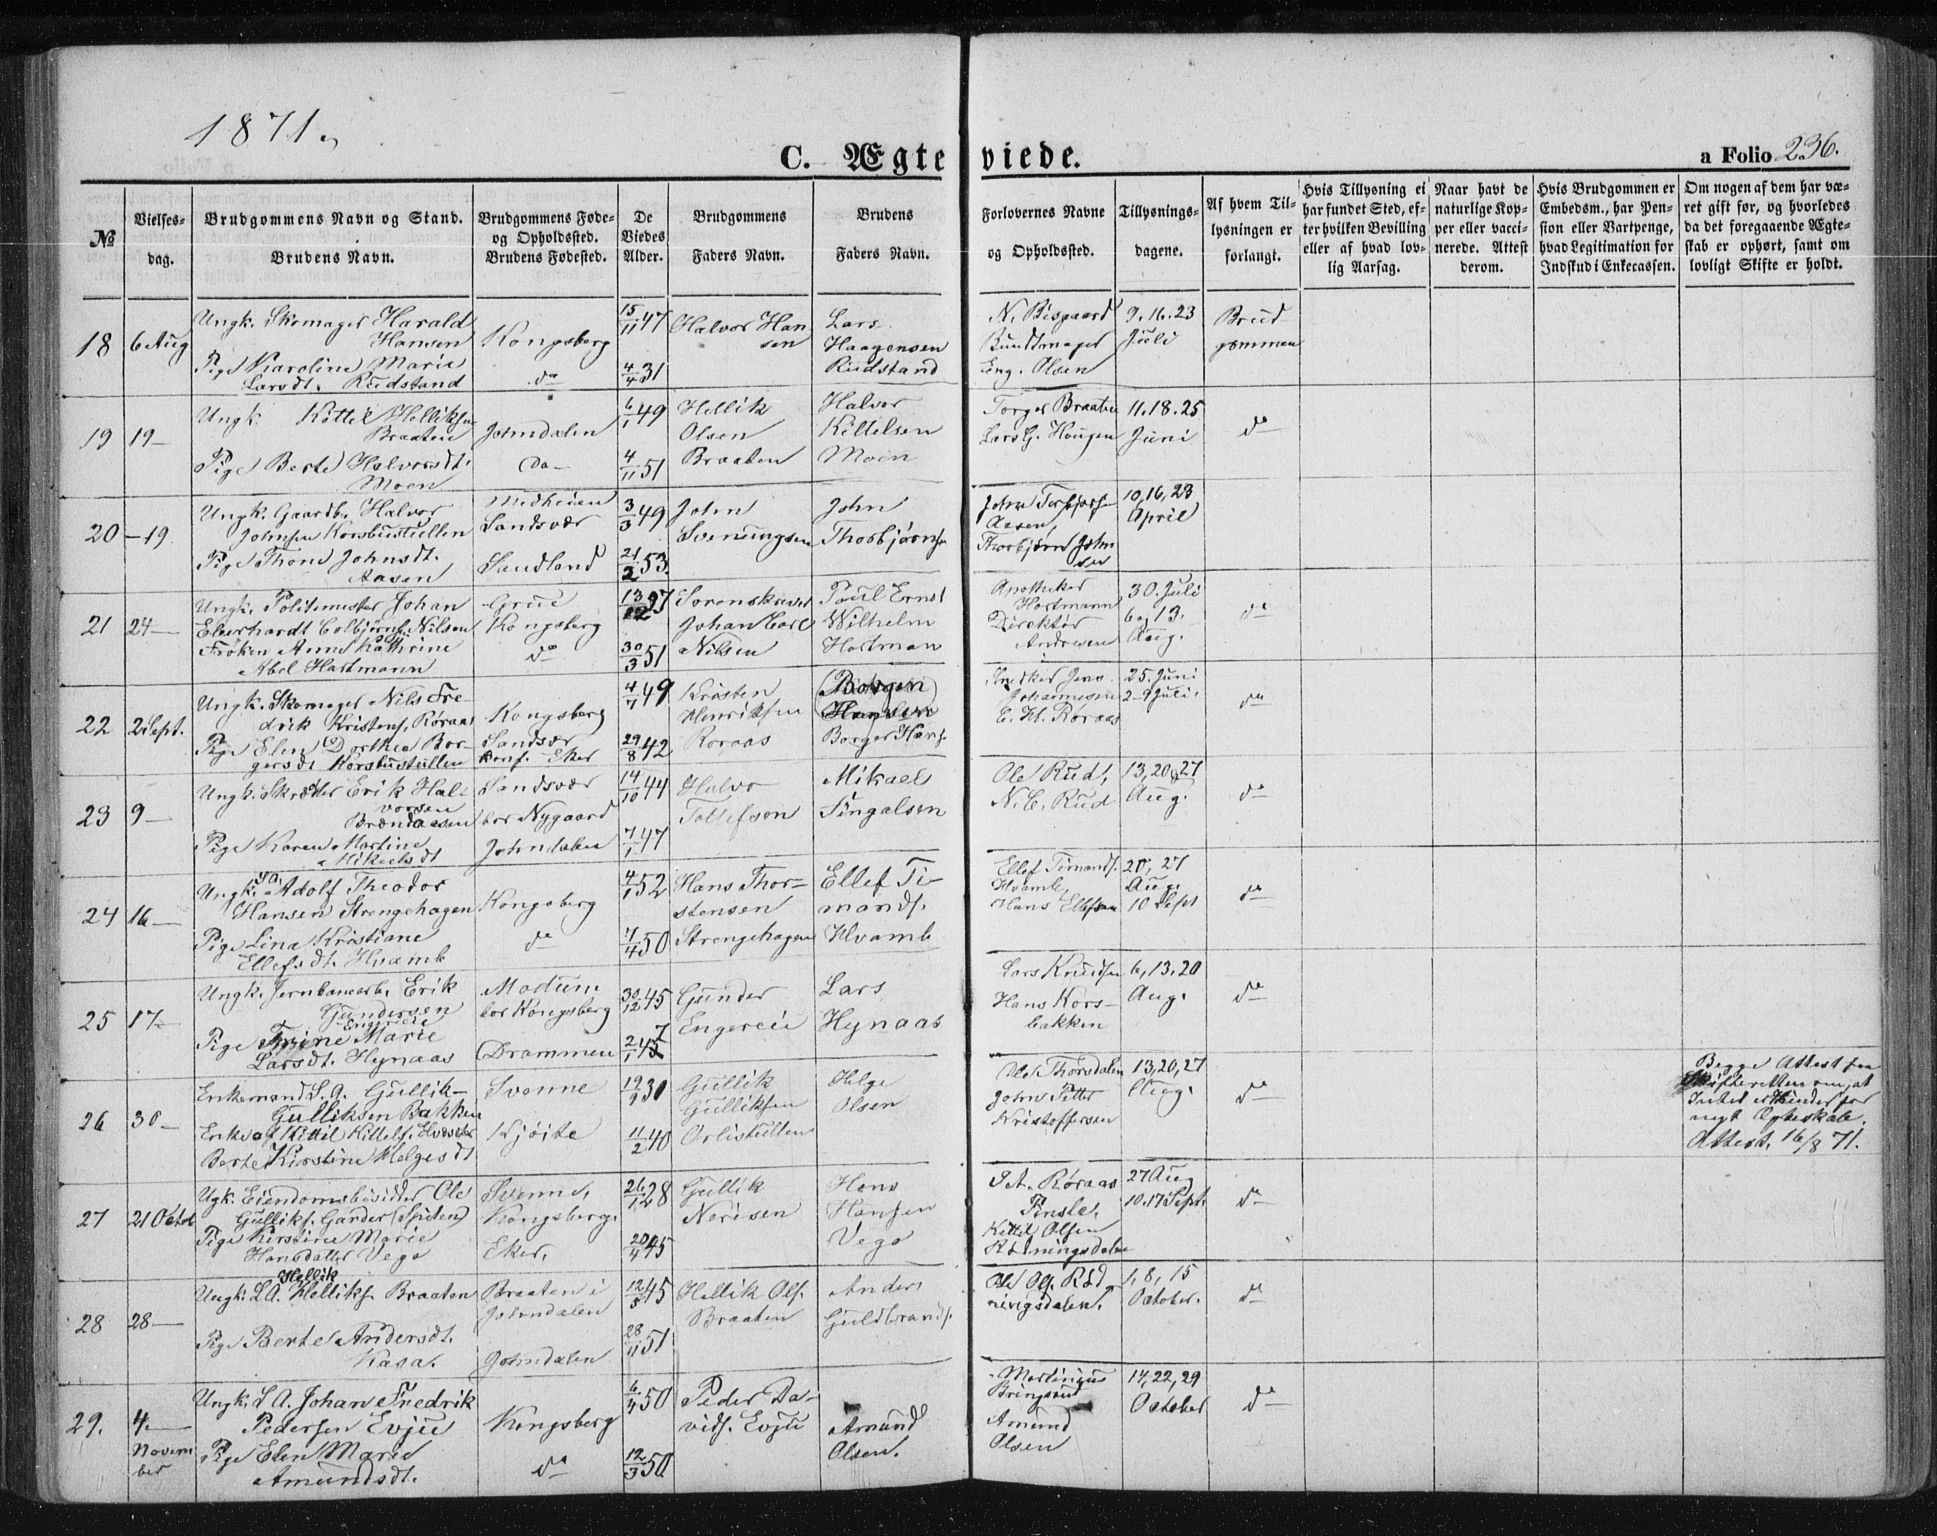 1871.
C. Ægteviede.
a Folio 236.
№
Vielses-
dag.
Brudgommens Navn og Stand.
Brudens Navn.
Brudgommens Føde-
og Opholdssted.
Brudens Fødested.
De
Viedes
Alder.
Brudgommens
Faders Navn.
Brudens
Faders Navn.
Forlovernes Navne
og Opholdssted.
Tillysnings-
dagene.
Af hvem Til-
lysningen er
forlangt.
Hvis Tillysning ei
har fundet Sted, ef-
ter hvilken Bevilling
eller af hvad lov-
lig Aarsag.
Naar havt de
naturlige Kop-
per eller vacci-
nerede. Attest
derom.
Hvis Brudgommen er
Embedsm., har Pen-
sion eller Vartpenge,
hvad Legitimation for
Indskud i Enkecassen.
Om nogen af dem har væ-
ret gift før, og hvorledes
da det foregaaende Ægte-
skab er ophørt, samt om
lovligt Skifte er holdt.
18
6 Aug
Ungk. Skomager Harald
Hansen
Pige Karoline Marie
Larsdt. Rudstand
Kongsberg
do
15/11 47
4/4 31
Halvor Han
sen
Lars
Haagensen
Rudstand
N. Bisgaard
Bundtmager
Eng. Olsen
9. 16. 23
Juli
Brud
gommen
19
19
Ungk. Kittil Helliksen
Braaten
Pige Berte Halvorsdt.
Moen
Johndalen
Do
6/1 49
4/11 51
Hellik
Olsen
Braaten
Halvor
Kittelsen
Moen
Torger Braaten
Lars G. Hougen
11. 18. 25
Juni
do
20
19.
Ungk. Gaardb. Halvor
Johnsen Korsbustullen
Pige Thone Johnsdt.
Aasen
Medheien
Sandsvær
Sandland
3/3 49
21/2 53.
John
Svenungsen
John
Thorbjørns
Aasen
Thorbjørn John
sen
10, 16, 23
April
21
24
Ungk. Politimester Johan
Eberhardt Colbjørns. Nilsen
Frøken Anne Kathrine
Abel Hartmann
Grue
Kongsberg
do
30/3 51
Sorenskriver
Johan Carl
Nilsen
Poul Ernst
Wilhelm
Hartman
Apotheker
Hartmann
Direktør
Andresen
30. Juli
6 og 13.
Aug.
do
22
2 Sept.
Ungk. Skomager Nils Fre
drik Kristens. Røraas
Pige Elen Dorthea Bor-
gersdt Korsbustullen
Kongsberg
Sandsvær
Conf. Eker
4/7 49
29/8 42
Kristen
Henriksen
Roraas
Borger Hans.
Snedker Jens
Johannesen
E. H. Røraas
25. Juni
2-9 Juli.
do
23
9
Ungk. Skrædder Erik Hal-
vorsen
Brændaasen
Pige Karen Martine
Mikelsdt
Sandsvær
bor Nygaard
Johndalen
14/10 44
7/1 47
Halvo
Tollefsen
Mikael
Fingalsen
Ole Rud,
N. E. Rud
13, 20, 27
Aug.
do
24
16
Ungk. Adolf Theodor
Hansen Strengehagen
Pige Lina Kristiane
Ellefsdt. Hvamb
Kongsberg
do
4/1 52
7/4 50
Hans Thor-
stensen
Strengehagen
Ellef Ti-
mands.
Hvamb
Ellef Timands.
Hvamb
Hans Ellefsen
20, 27
Aug.
10 Sept
do
25
17
Ungk. Jernbanearb. Erik
Gundersen
Engereie
Pige Trine Marie
Larsdt. Hynaas
Modum
bor Kongsberg
Drammen
30/12 45
Gunder
Engereie
Lars
Hynaas
Lars Knudsen
Hans Kors-
bakken
6, 13, 20
Aug.
do
26
30
Enkemand S. A. Gullik
Gulliksen Bakken
Enke af Kittil Kittels.
Berte Kirstine Helgesdt
Svenne
Kjøite
11/2 40
Gullik
Gulliksen
Orlistullen
Helge
Olsen
Ole Thorsdalen
John Petter
Kristoffersen
13, 20, 27
Aug.
do
Begge Attest fra
Skifteretten om, at
Intet er til hinder for
nyt Ægteskab.
Attest, 16/8 71.
27
21 Octob
Ugk. Eiendomsbesidder Ole
Gulliks. Garder (Spiten)
Pige Kirstine Marie
Hansdatter Vego
Svenne,
Kongsberg.
Eker.
26/12 28
20/4 45
Gullik
Nerisen
Hans
Hansen
Vego
J. A. Røraas
Kittil Olsen
Rødningsdalen
27 Aug
10. 17 Sept.
do
28
28
Hellik
Ungk. S. A. Helliks. Braaten
Pige Berte Andersdt.
Kasa.
Braaten i
Johndalen
Johndalen
12/5 45
28/11 51
Hellik Ols.
Braaten
Anders
Guldbrands.
Ole Og. Rød
ningsdalen.
1, 8, 15
October.
do
29.
4.
Novem
ber
Ungk. S A. Johan Fredrik
Pedersen Evju
Pige Elen Marie
Amundsdt.
Kongsberg
do
6/4 50
12/3 50
Peder Da-
vids. Evju
Amund
Olsen.
Martinius
Bringsrud
Amund
Olsen
14, 22, 29
October
do